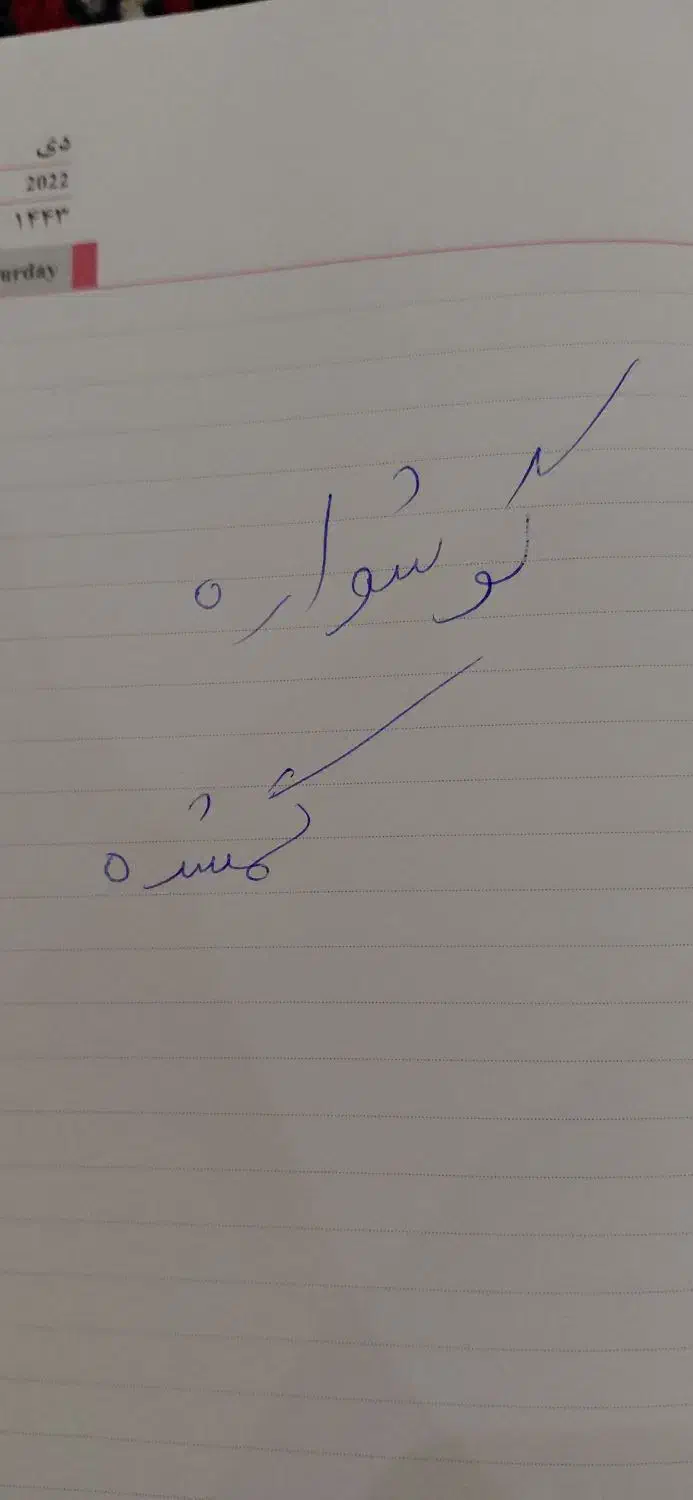 دی
2022
۱۴۴۳
urday
گوشواره
گمشده